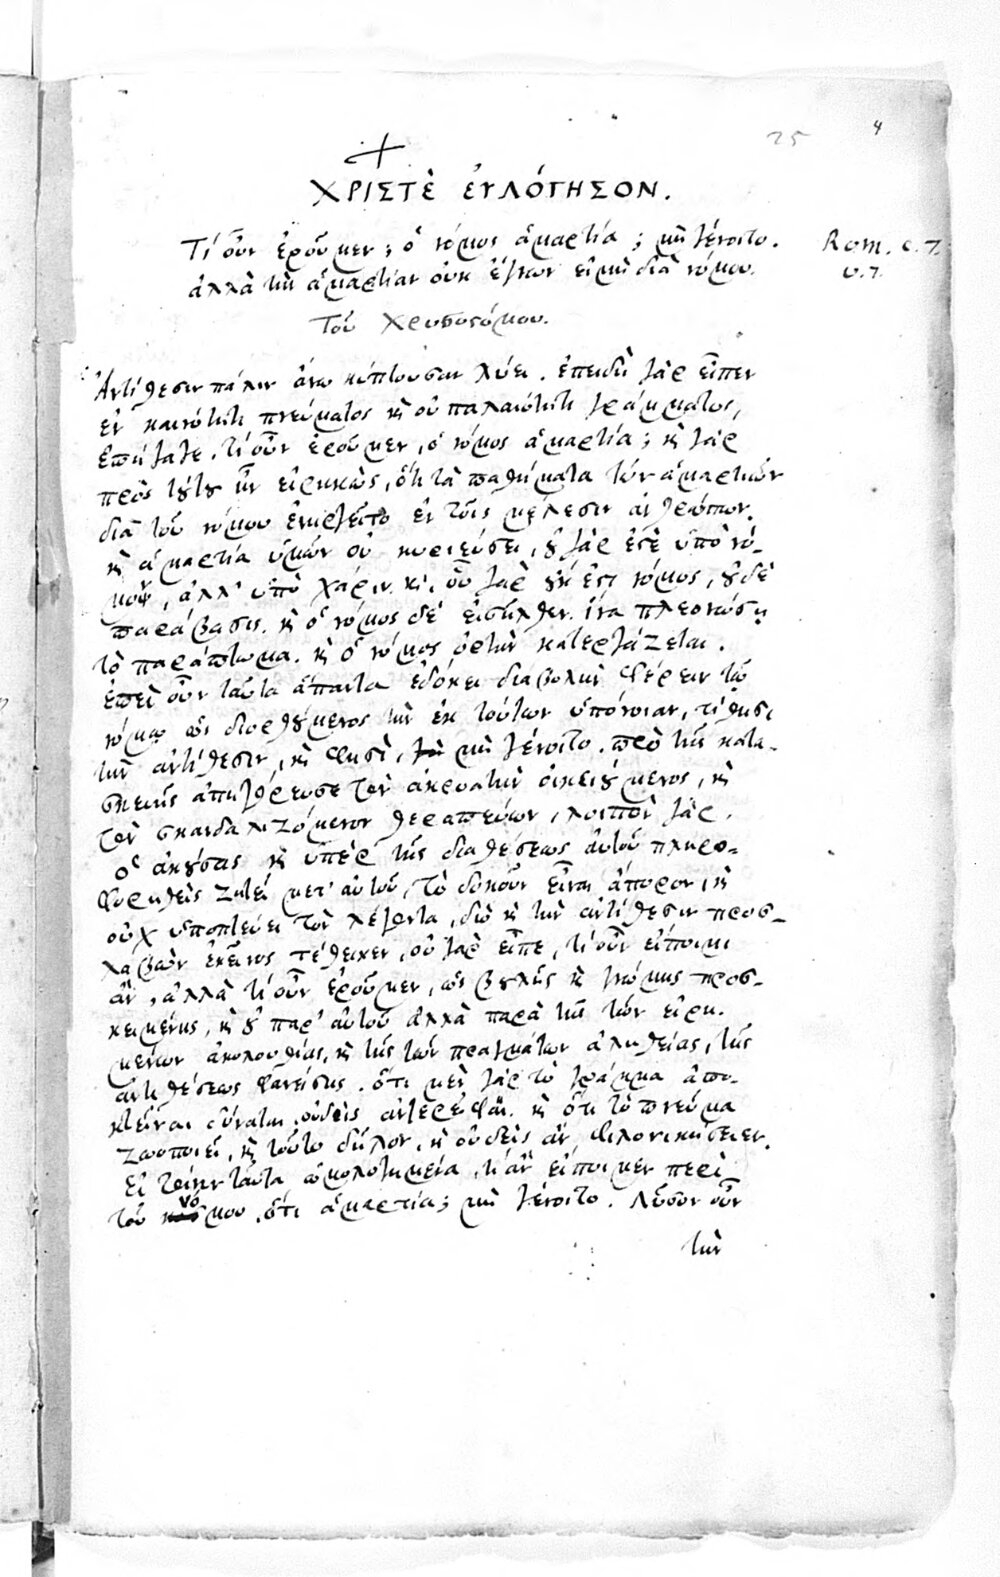 25
4
ΧΡΙΣΤῈ ΕΥ̓ΛΌΓΗΣΟΝ.
Τί οὖν ἐροῦμεν; ὁ νόμος ἁμαρτία; μὴ γένοιτο. Rom. c. 7.
ἀλλὰ τὴν ἁμαρτίαν οὐκ ἔγνων εἰ μὴ διὰ νόμου. v. 7.
Τοῦ Χρυσοστόμου.
Ἀντίθεσιν πάλιν ἄνω κύπτουσαν λύει. ἐπειδὴ γὰρ εἶπεν
ἐν καινότητι πνεύματος κỳ οὐ παλαιότητι γράμματος,
ἐπήγαγε. τί οὖν ἐροῦμεν, ὁ νόμος ἁμαρτία; κỳ γὰρ
πρὸς τȣ́τȣ ἦν εἰρηκὼς, ὅτι τὰ παθήματα τῶν ἁμαρτιῶν
διὰ τοῦ νόμου ἐνηργεῖτο ἐν τοῖς μέλεσιν ἀνθρώπων.
κỳ ἁμαρτία ὑμῶν οὐ κυριεύσει, ȣ̓ γάρ ἐστὲ ὑπὸ νό-
μον, ἀλλ' ὑπὸ χάριν. κỳ, οὗ γὰρ ȣ̓κ ἔστι νόμος, ȣ̓δὲ
παράβασις. κỳ ὁ νόμος δὲ εἰσῆλθεν ἵνα πλεονάσῃ
τὸ παράπτωμα. κỳ ὁ νόμος ὀργὴν κατεργάζεται.
ἐπεὶ οὖν ταῦτα ἅπαντα ἐδόκει διαβολὴν φέρειν τῷ
νόμῳ ὡς διορθȣ́μενος τὴν ἐκ τούτων ὑπόνοιαν, τίθησι
τὴν ἀντίθεσιν, κỳ φησὶ, μὴ γένοιτο. πρὸ τῆς κατα-
σκευῆς ἀπηγόρευσε τὸν ἀκροατὴν οἰκειȣ́μενος, κỳ
τὸν σκανδαλιζόμενον θεραπεύων, λοιπὸν γὰρ.
ὁ ἀκȣ́σας κỳ ὑπὲρ τῆς διαθέσεως αὐτοῦ πληρο-
φορηθεὶς ζητεῖ μετ' αὐτοῦ, τὸ δοκοῦν εἶναι ἄπορον, κỳ
οὐχ ὑποπτεύει τὸν λέγοντα, διὸ κỳ τὴν ἀντίθεσιν προσ-
λαβὼν ἐκεῖνος τέθεικεν, οὐ γὰρ εἶπε, τί οὖν εἴποιμι
ἂν, ἀλλὰ τί οὖν ἐροῦμεν, ὡς βȣλῆς κỳ γνώμης προσ-
κειμένης, κỳ ȣ̓ παρ' αὐτοῦ ἀλλὰ παρὰ τῆς τῶν εἰρη-
μένων ἀκολουθίας, κỳ τῆς τῶν πραγμάτων ἀληθείας, τῆς
ἀντιθέσεως φανείσης. ὅτι μὲν γὰρ τὸ γράμμα ἀπο-
κτεῖναι δύναται, οὐδεὶς ἀντερεῖ φησι. κỳ ὅτι τὸ πνεῦμα
ζωοποιεῖ, κỳ τοῦτο δῆλον, κỳ οὐδεὶς ἂν φιλονικήσειεν.
Εἰ τοίνυν ταῦτα ὡμολογημένα, τί ἂν εἴποιμεν περὶ
τοῦ νόμου. ὅτι ἁμαρτία; μὴ γένοιτο. Λῦσον οὖν
τὴν